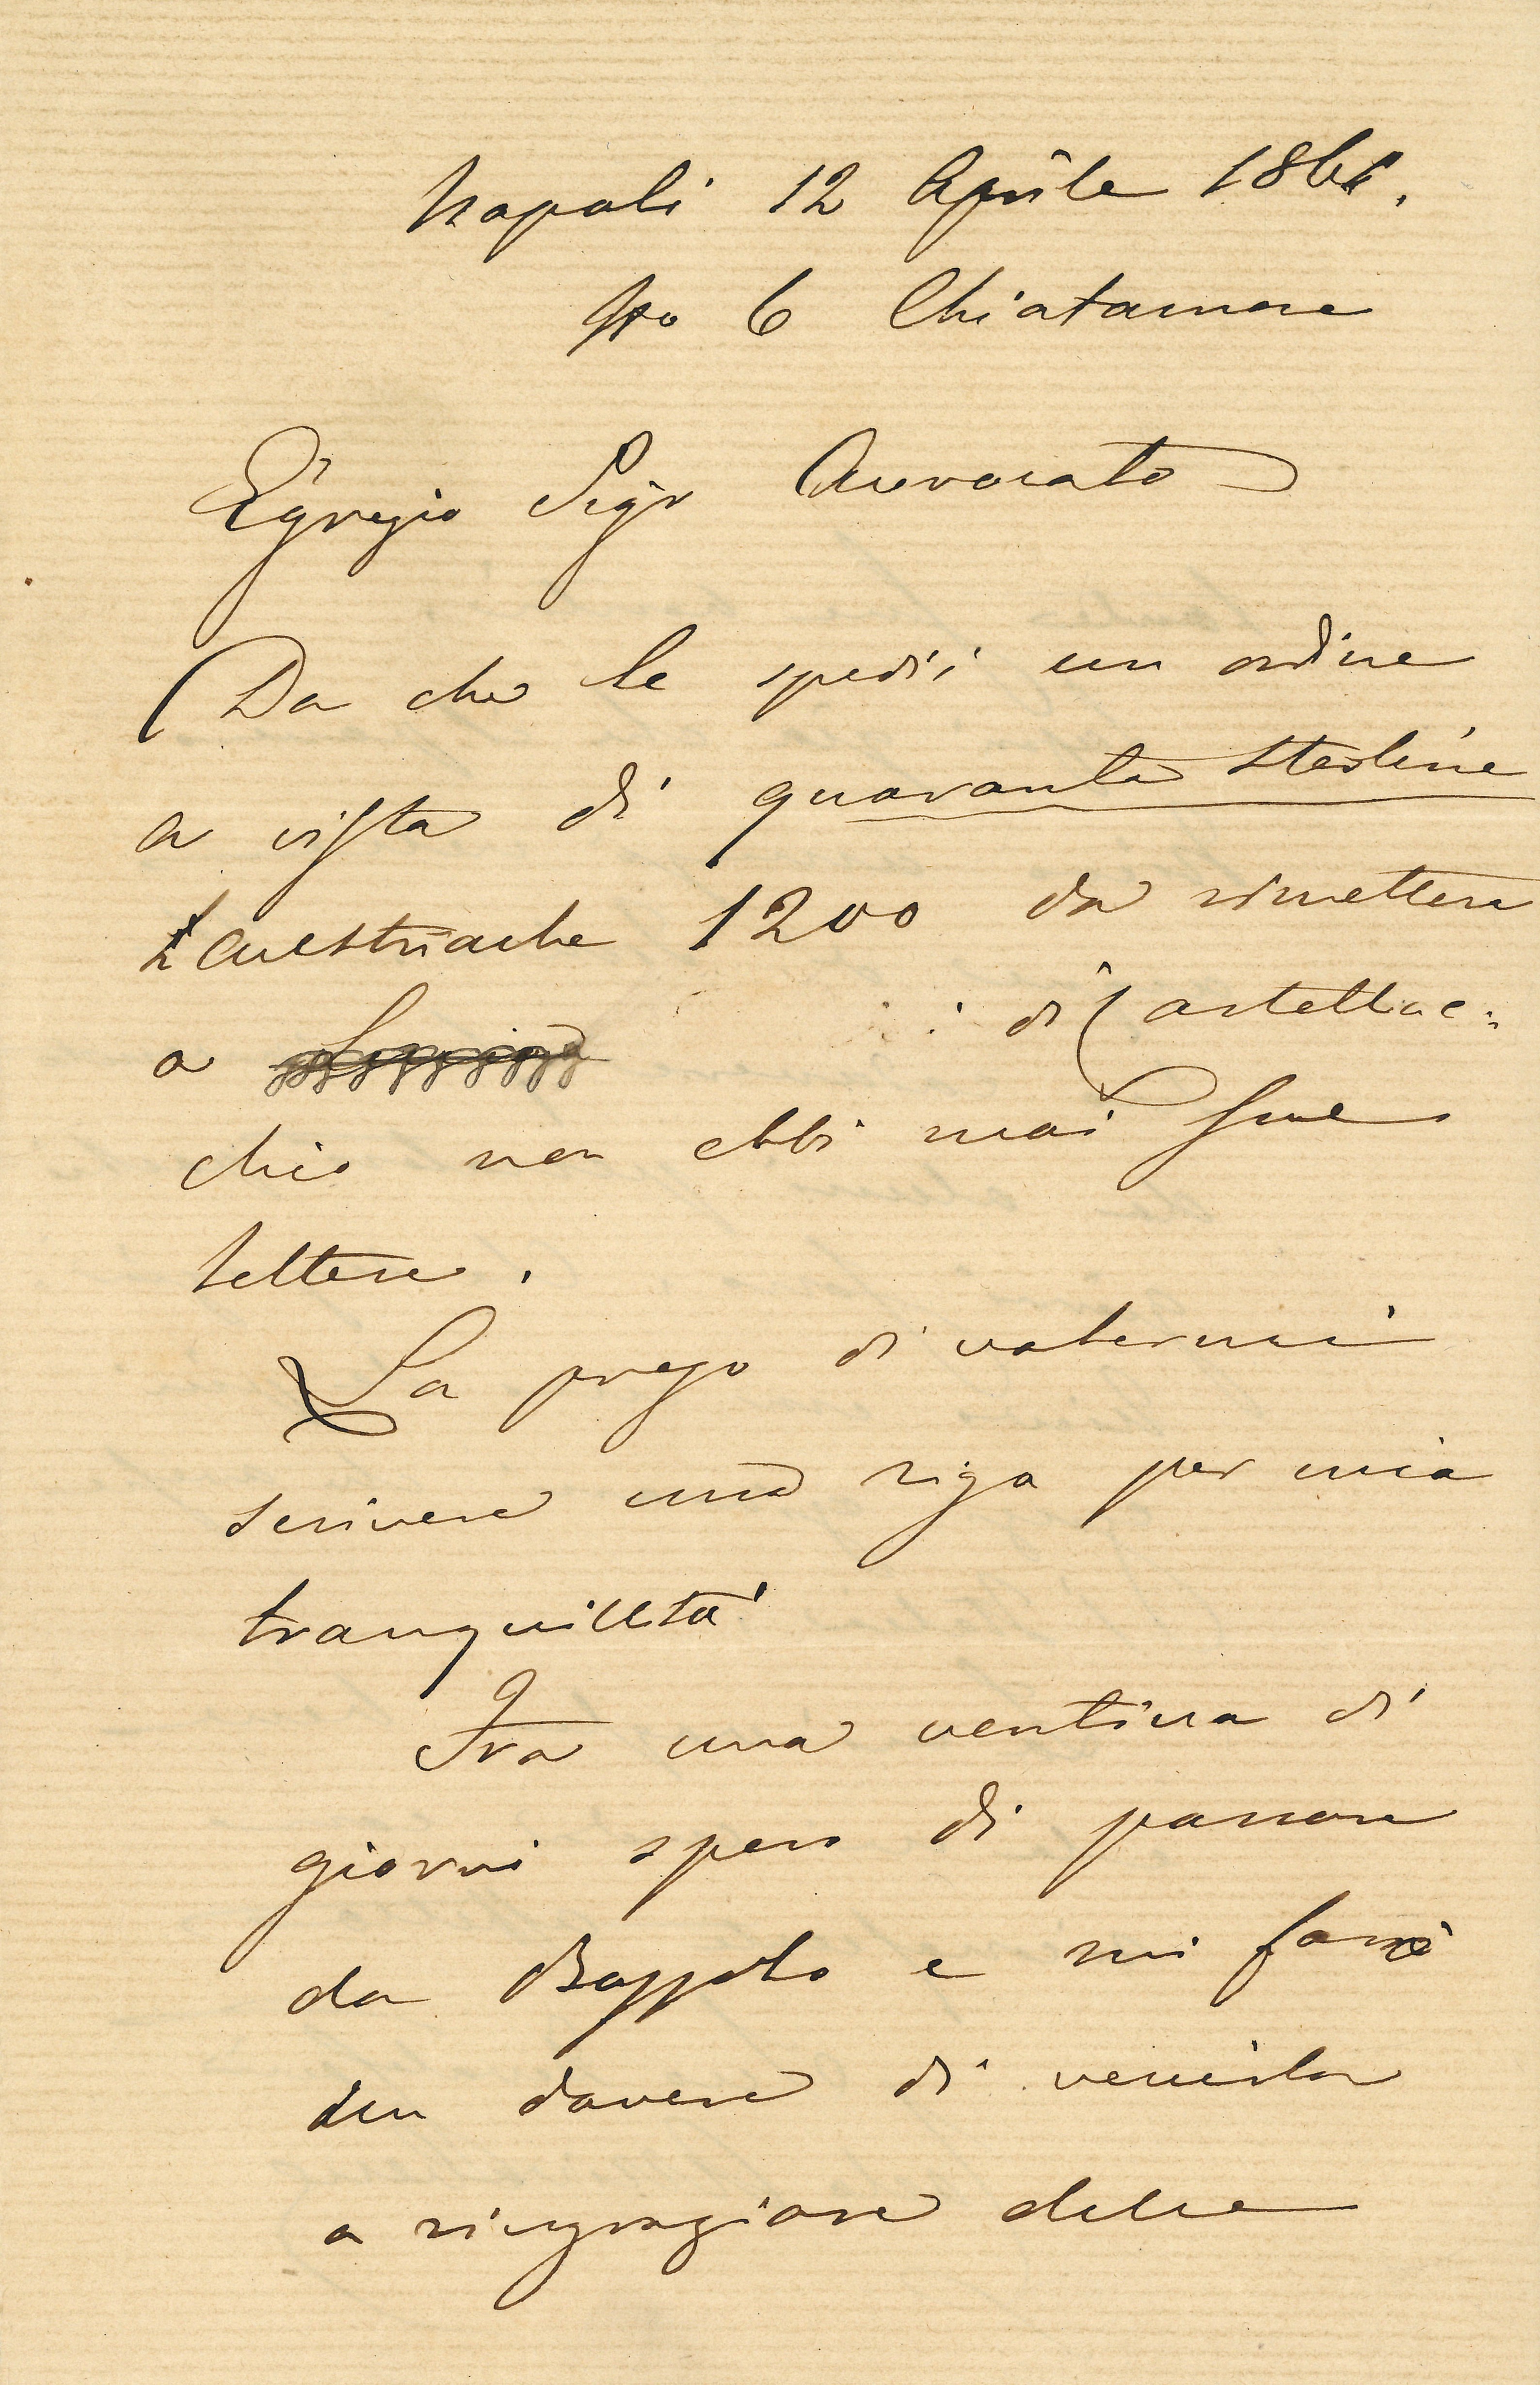 Napoli 12 Aprile 1861.
No 6 Chiatamone
Egregio Sigr Avvocato
Da che le spedii un ordine
a vista di quaranta sterline
£ austriache 1200 da rimettere
a di Castellac:
chio non ebbi mai sue
lettere.
La prego di valermi
scrivere una riga per mia
tranquilltà
Fra una ventina di
giorni spero di passare
da e mi farò
un dovere di venirla
a ringraziare delle